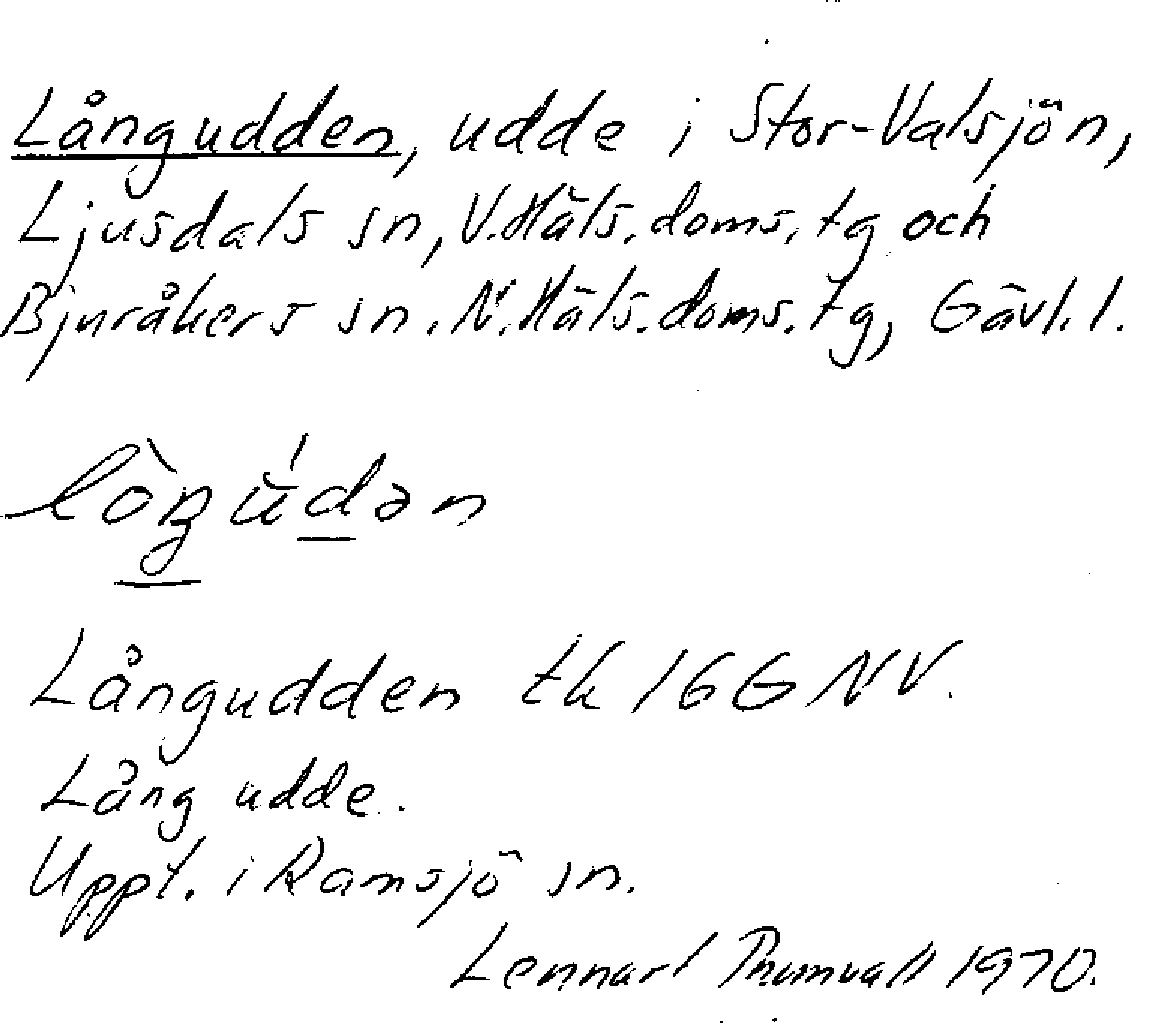 Långudden, udde i Stor-Valsjön,
Ljusdals sn, V. Häls. doms. tg och
Bjuråkers sn. N. Häls. doms. tg, Gävl. l.
lòŋŭ́dən
Långudden tk 16G NV.
Lång udde.
Uppt. i Ramsjö sn.
Lennart 1970.